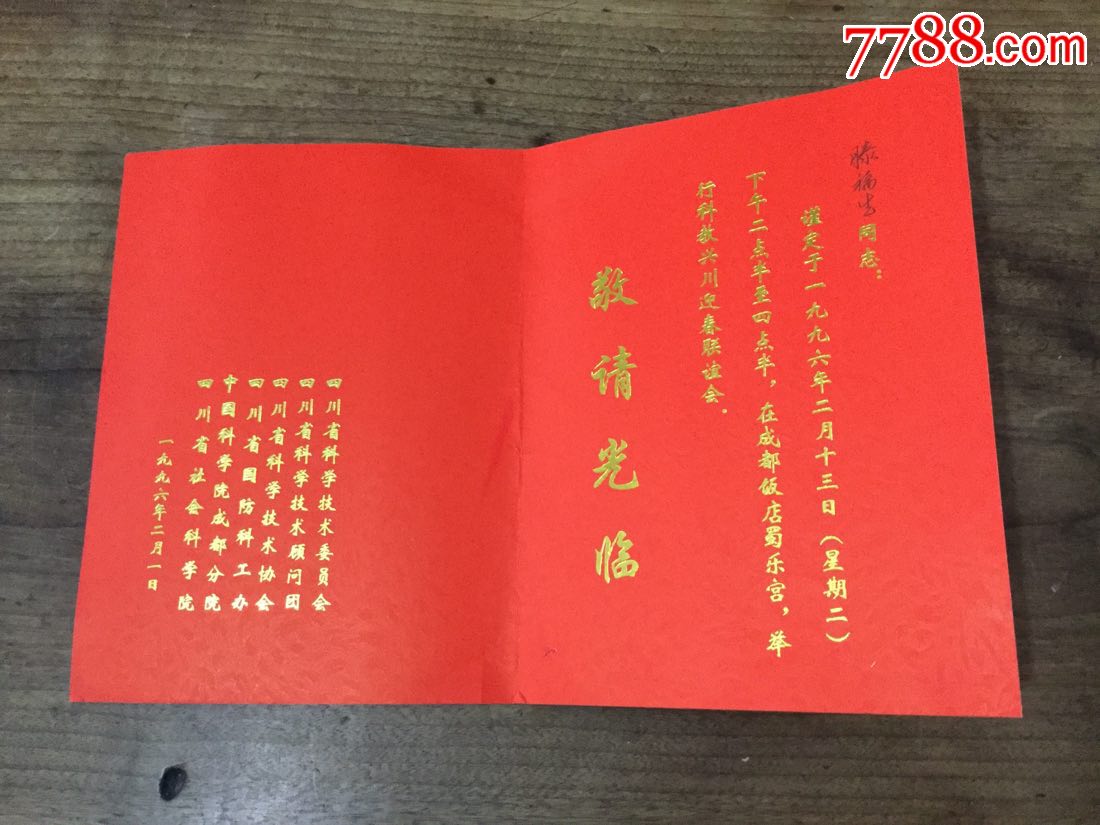 7788.com
滕福生同志：
谨定于一九九六年二月十三日（星期二）
下午二点半至四点半，在成都饭店蜀乐宫，举
行科教兴川迎春联谊会．
敬请光临
四川省科学技术委员会
四川省科学技术顾问团
四川省科学技术协会
四川省国防科工办
中国科学院成都分院
四川省社会科学院
一九九六年二月一日